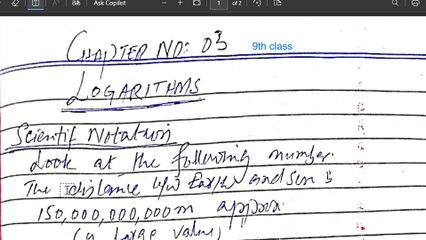 Ask Copilot
1 of 2
CHAPTER NO: 03
9th class
LOGARITHMS
Scientif Notation
Look at the following number.
The distance b/w Earth and Sun is
150,000,000,000m approx
(a large value)